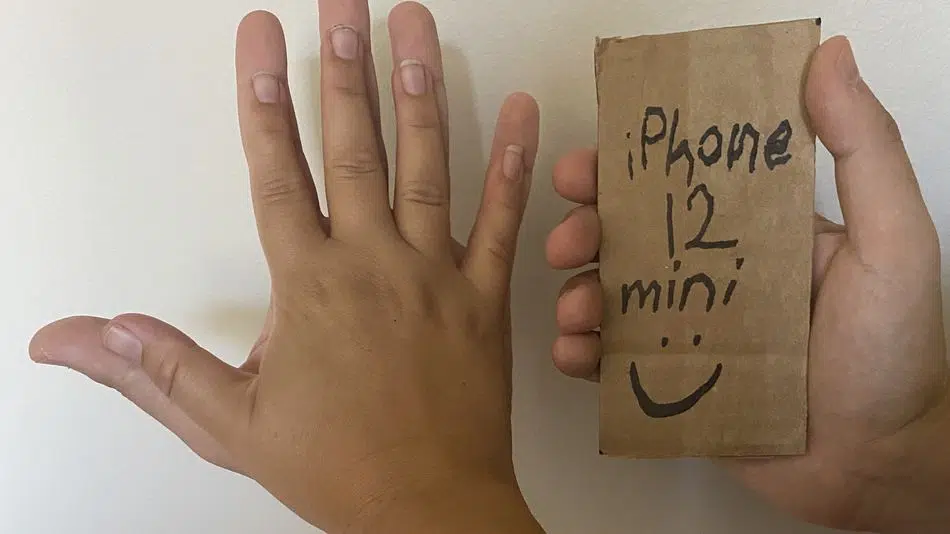 iPhone
12
mini